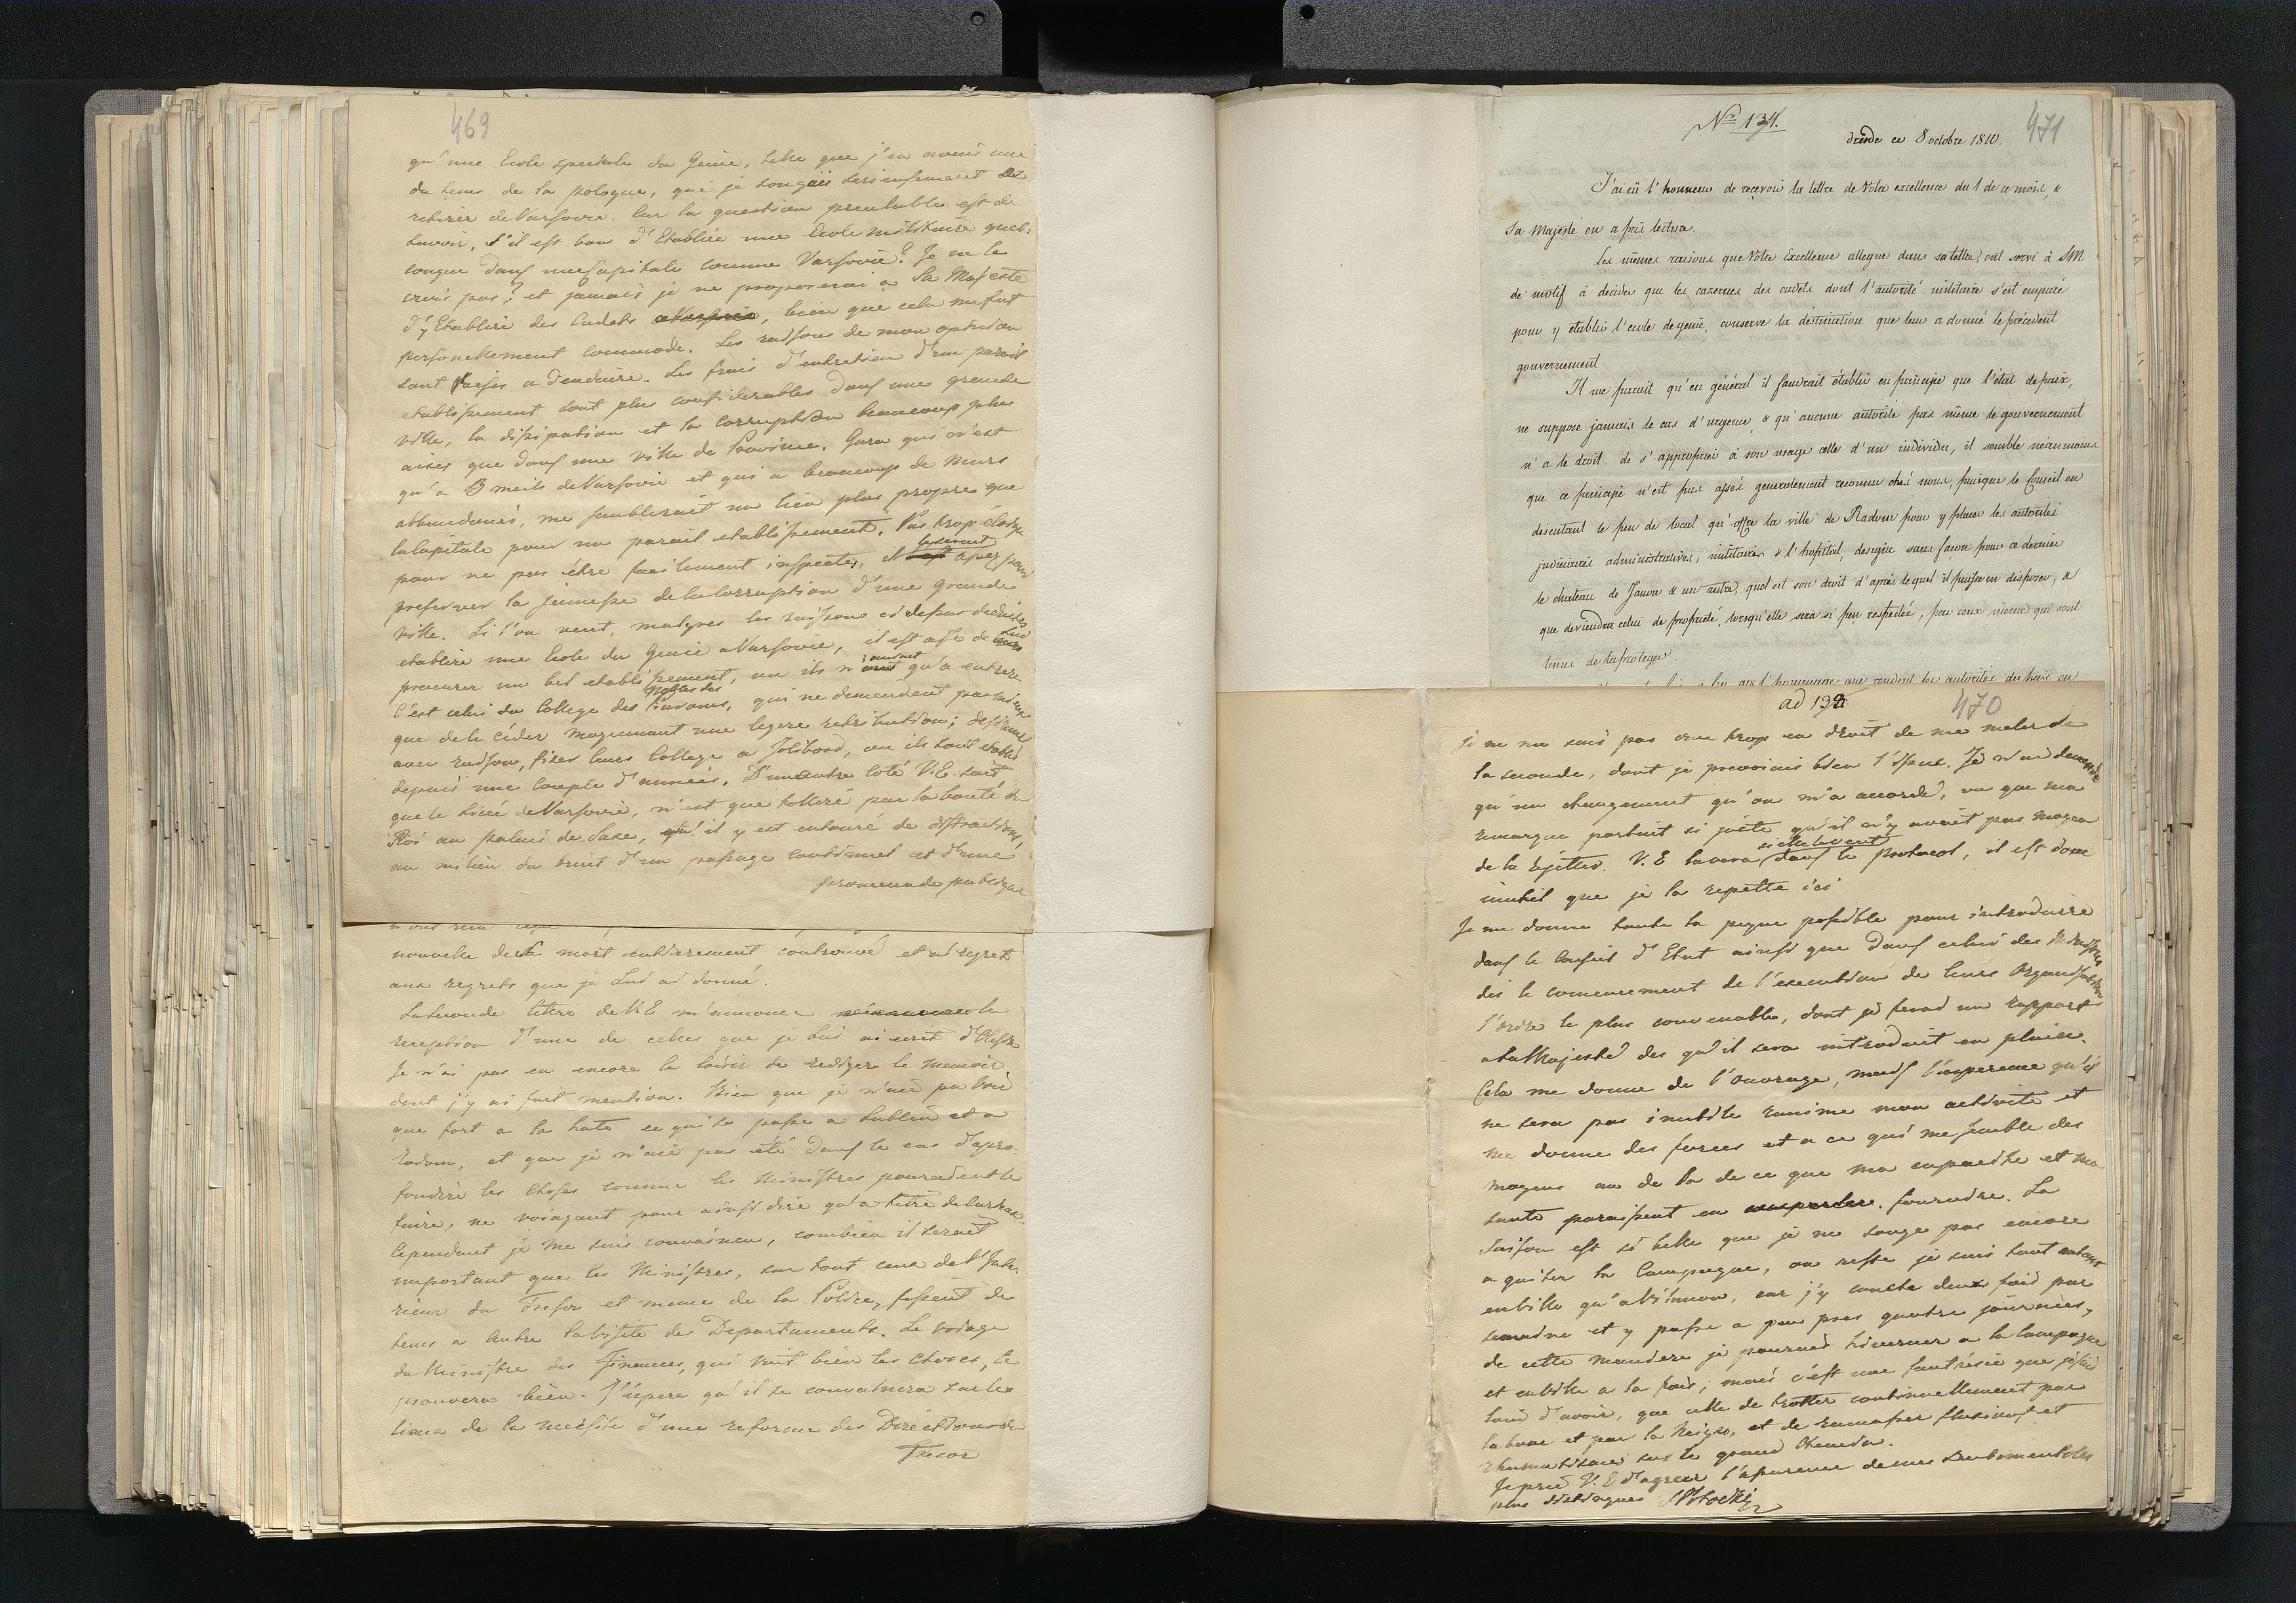 469
qu'une Ecole speciale du Genie, telle que j'en avais une
du tems de la pologne, que je songais serieusement de
retirer de Varsovie. Car la question prealable est de
savoir, s'il est bon d'Etablire une Ecole militaire quel-
conque dans une Capitale comme Varsovie? Je ne le
crois pas? et jamais je ne proposerai a Sa Majesté
d'y Etablire des Cadets, bien que cela me fut
personellement commode. Les raisons de mon opinion
sont faciles a deduire. Les frais d'entretien d'un pareil
etablissement sont plus considerables dans une grande
ville, la dissipation et la corruption beaucoup plus
aisés que dans une ville de Province. Gura qui n'est
qu'a 3 meils de Varsovie et qui a beaucoup de murs
abbandonés, me semblerait un lieu plus propre que
la Capitale pour un pareil etablissement. Pas trop éloigné
pour ne pas être facilement inspectés, il le serait assez pour
preserver la jeunesse de la Corruption d'une grande
ville. Si l'on veut, malgres les raisons ci dessus deduites
etablire une Ecole du Genie a Varsovie, il est aisé de
procurer un bel etablissement, ou ils n'auront qu'a entrer
C'est celui du College des Piaristes, qui ne demandent pas mieux
que de le céder moyennant une legere retribution; desirant
avec raison, fixer leurs College a Jolibord, ou ils sont etablis
depuis une couple d'années. D'un autre coté V.E. sait
que le Licé de Varsovie, n'est que tolleré par la bonté du
Roi au palais de Saxe, qu'il y est entouré de distractions,
au milieu du bruit d'un passage continuel et d'une
promenade publique
nouvelle de la mort entierement controuvé et ai regrets
aux regrets que je Lui ai donné.
La seconde lettre de V.E m'annonce la
reception d'une de celles que je Lui ai ecrit
Je n'ai pas eu encore le loisir de rediger le memoir
dont j'y ai fait mention. Bien que je n'aie pu voir
que fort a la hate ce qui se passe a Lublin et a
Radom, et que je n'aie pas eté dans le cas d'apro-
fondire les Choses comme les Ministres pouraient le
faire, ne voiagant pour ainsi dire qu'a titre de
Cependant je me suis convaincu, combien il serait
important que les Ministres, sur tout ceux de l'Inte-
rieur du Tresor et meme de la Police, fassent de
tems a autre la visite des Departements. Le voiage
du Ministre des Finances, qui voit bien les choses, le
prouvera bien. J'espere qu'il se convaincra sur les
lieux de la necessité d'une reforme des Directions du
Tresor
Nro 134.
471
dresde ce 8 octobre 1810.
J'ai eû l'honneur de recevoir la lettre de Votre excellence du 1 de ce mois, &
Sa Majesté en a pris lecture.
Les mêmes raisons que Votre Excellence allegue dans sa lettre, ont servi à SM
de motif à decider que les casernes des cadets dont l'autorité militaire s'est emparé
pour y etablir l'ecole de genie, conserve la destination que leur a donné le précedent
gouvernement
Il me parait qu'en général il faudrait établir en principe que l'état de paix,
ne suppose jamais le cas d'urgence, & qu'aucune autorité pas même le gouvernement
n'a le droit de s'approprier à son usage celle d'un individu, il semble néanmoins
que ce principe n'est pas assés generalement reconnu chés nous, puisque le Conseil en
discutant le peu de local qu'offre la ville de Radom pour y placer les autorités
judiciaires administratives, militaires & l'hopital, designe sans façon pour ce dernier
le chateau de Janow & un autre, quel est son droit d'après lequel il puisse en disposer, &
que deviendra celui de propriété, lorsqu'elle sera si peu respectée, par ceux même qui sont
tenus de la proteger.
l'hommage que rendent les autorités du haut en
ad 132
470
Je ne me suis pas cru trop en droit de me meler de
la seconde, dont je prevoiais bien l'issue. Je n'ai demandé
qu'un changement qu'on m'a accordé, vu que ma
remarque portait si juste qu'il n'y avait pas moyen
de la rejetter. V.E la verra dans le protocol, il est donc
inutil que je la repette ici
Je me donne toute la peyne possible pour introduire
dans le Conseil d'Etat ainsi que dans celui des Ministres
dès le comencement de l'execution de leurs Organisation
l'ordre le plus convenable, dont je ferai un rapport
a Sa Majesté des qu'il sera introduit en plein.
Cela me donne de l'Ouvrage, mais l'esperance qu'il
ne sera pas inutile ranime mon activité et
me donne des forces et a ce qui me semble des
moyens au de la de ce que ma capacité et ma
santé paraissent en fournire. La
Saison est si belle que je ne songe pas encore
a quiter la Campagne, au reste je suis tout autant
en ville qu'a Vilanow, car j'y couche deux fois par
semaine et y passe a peu pres quatre journées,
de cette maniere je pourrai hiverner a la Campagne
et en ville a la fois; mais c'est une fantésie que je suis
loin d'avoir, que celle de trotter continuellement par
la boue et par la Neige, et de ramasser fluxions et
rhumatismes sur le grand Chemin.
Je prie V.E. d'agreer l'assurance de mes sentiments les
plus distingués SPotocki